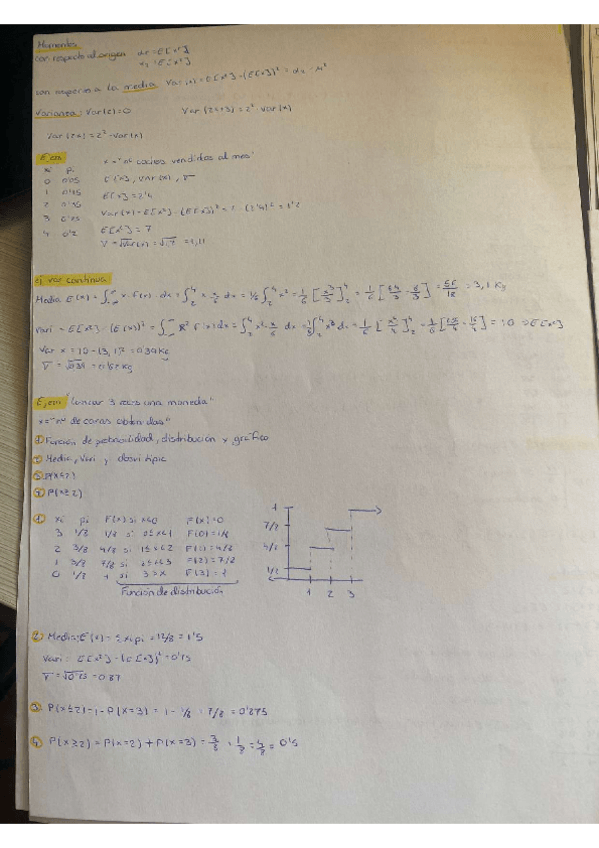 Momentos
con respecto al origen α₁ = E[x¹]
α₂ = E[x²]
con respecto a la media Var(x) = E[x²] - (E[x])² = α₂ - μ²
Varianza: Var(c) = 0 Var(2x+3) = 2² · Var(x)
Var(2x) = 2² · Var(x)
Ejem x = "nº coches vendidos al mes"
xi pi E[x], VAR(x), σ
0 0'05
1 0'15 E[x] = 2'4
2 Var(x) = E[x²] - (E[x])² = 7 - (2'4)² = 1'2
3
4 0'2 E[x²] = 7
ej vas continua
Media E(x) = ∫ x · f(x) · dx = ∫₂⁴ x · x/6 dx = 1/6 ∫₂⁴ x² = 1/6 [x³/3]₂⁴ = 1/6 [64/3 - 8/3] = 56/18 = 3,1 Kg
Vari = E[x²] - (E(x))² = ∫ x² f(x) dx = ∫₂⁴ x² · x/6 dx = 1/6 ∫₂⁴ x³ dx = 1/6 [x⁴/4]₂⁴ = 10 => E[x²]
Ejem "lanzar 3 veces una moneda"
x = "nº de caras obtenidas"
① Función de probabilidad, distribución y gráfico
② Media, Vari y desvi típic
④ P(x≥2)
① xi pi F(x) si x<0 F(x)=0
3 1/8 1/8 si 0≤x<1 F(0)=1/8
2 3/8 4/8 si 1≤x<2 F(1)=4/8
1 3/8 7/8 si 2≤x<3 F(2)=7/8
0 1/8 1 si 3≥x F(3)=1
Función de distribución
1
7/8
4/8
1/8
1 2 3
② Media: E(x) = Σxi pi = 12/8 = 1'5
Vari: E[x²] - (E[x])² = 0'75
σ = √0'75 = 0'87
③ P(x≤2) = 1 - P(x=3) = 1 - 1/8 = 7/8 = 0'875
④ P(x≥2) = P(x=2) + P(x=3) = 3/8 + 1/8 = 4/8 = 0'5